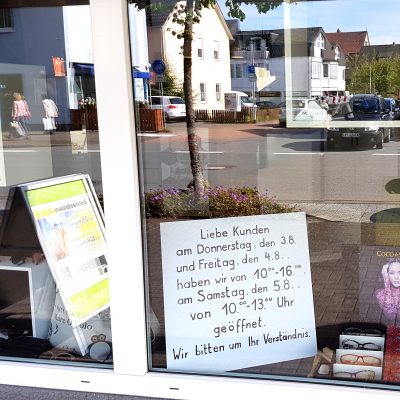 Liebe Kunden
am Donnerstag, den 3.8.
und Freitag, den 4.8..
haben wir von 10.⁰⁰-16.⁰⁰
am Samstag, den 5.8..
von 10.⁰⁰-13.⁰⁰ Uhr
geöffnet.
Wir bitten um Ihr Verständnis.